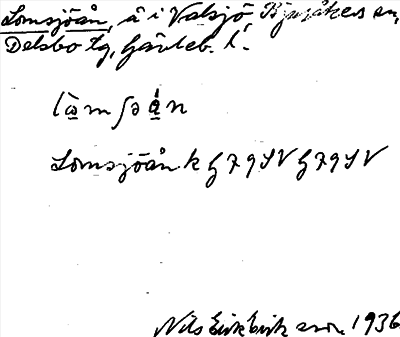 Lomsjöån, å i Valsjö, Bjuråkers sn,
Delsbo tg, Gävleb. l.
lὼmʃəán
Lomsjöån k G 79 SV G 79 SV
Nils Erik Eriksson 1936